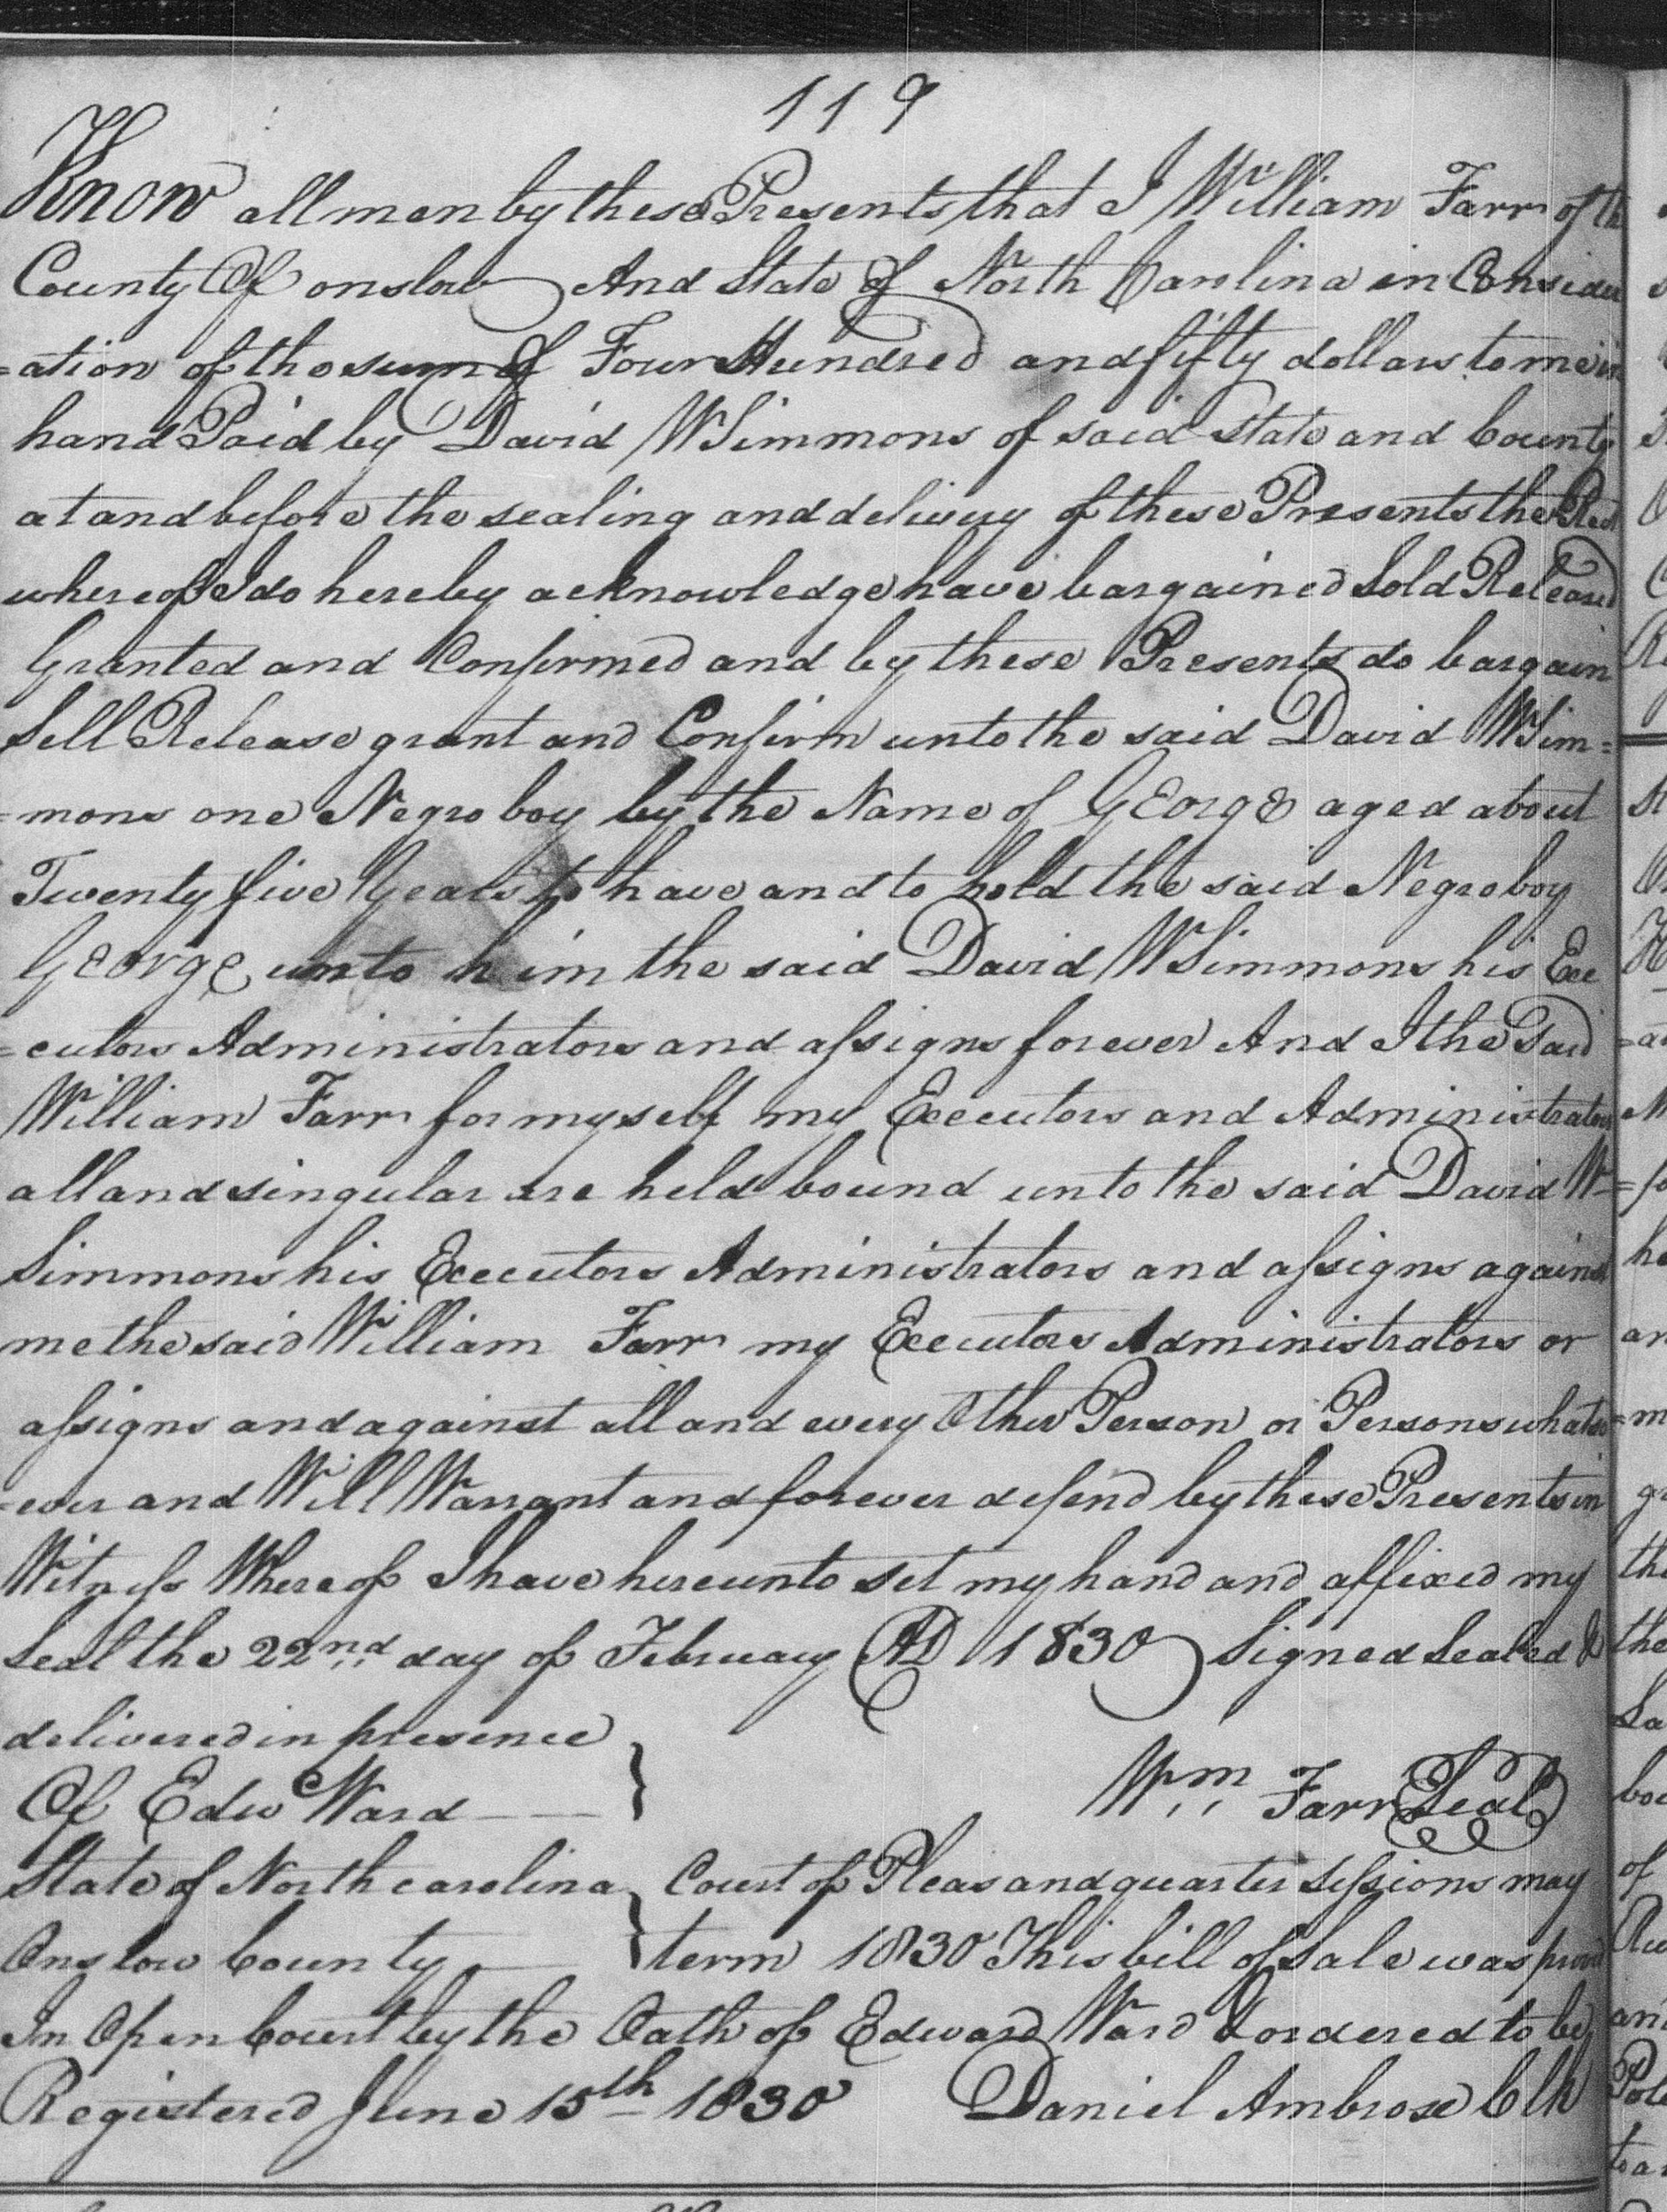 119
Know all men by these Presents that I William Farr of th
County Of onslow And State of North Carolina in Consider
=ation of the sum of Four Hundred and fifty dollars to me in
hand Paid by David W Simmons of said State and County
at and before the sealing and delivery of these Presents the Rect
whereof I do hereby acknowledge have bargained Sold Released
Granted and Confirmed and by these Presents do bargain
Sell Release grant and Confirm unto the said David W Sim=
=mons one Negro boy by the Name of George aged about
Twenty five Years to have and to hold the said Negro boy
George unto him the said David W Simmons his Exe
=cutors Administrators and assigns forever And I the Said
William Farr for myself my Executors and Administrators
all and singular are held bound unto the said David W
Simmons his Executors Administrators and assigns against
me the said William Farr my Executors Administrators or
assigns and against all and every Other Person or Persons whatso
=ever and Will Warrant and forever defend by these Presents in
Witness Whereof I have hereunto set my hand and affixed my
Seal the 22nd day of February AD 1830 Signed Sealed &
delivered in presence
Of Edw Ward } Wm Farr Seal
State of North carolina } Court of Pleas and quarter Sessions may
Onslow County } term 1830 This bill of Sale was proved
In Open Court by the Oath of Edward Ward & ordered to be
Registered June 15th 1830 Daniel Ambrose Clk